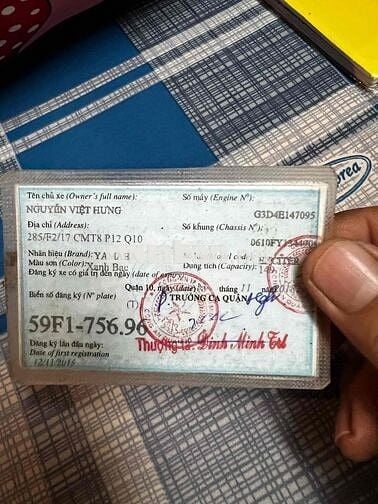 Tên chủ xe (Owner's full name):
NGUYỄN VIỆT HƯNG
Số máy (Engine Nº):
G3D4E147095
Địa chỉ (Address):
285/F2/17 CMT8 P12 Q10
Số khung (Chassis Nº):
Nhãn hiệu (Brand):
Màu sơn (Color):
Dung tích (Capacity): 149
Đăng ký xe có giá trị đến ngày (date of
Quận 10, ngày (date) tháng 11
Biển số đăng ký (Nº plate)
TRƯỞNG CA QUẬN
(T)
59F1-756.96
Thượng tá: Đinh Minh
Đăng ký lần đầu ngày:
Date of first registration
12/11/2015
orea